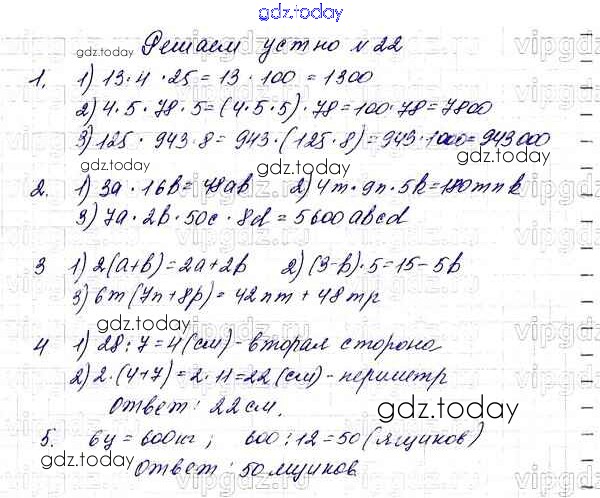 gdz.today
Решаем устно №22
1. 1) 13·4·25=13·100=1300
2) 4·5·78·5=(4·5·5)·78=100·78=7800
3) 125·943·8=943·(125·8)=943·1000=943000
2. 1) 3a·16b=48ab 2) 4m·9n·5k=180mnk
3) 7a·2b·50c·8d=5600abcd
3 1) 2(a+b)=2a+2b 2) (3-b)·5=15-5b
3) 6m(7n+8p)=42nm+48mp
4 1) 28:7=4(см)-вторая сторона
2) 2·(4+7)=2·11=22(см)-периметр
Ответ: 22см.
5. 6ц=600кг; 600:12=50(ящиков)
Ответ: 50 ящиков